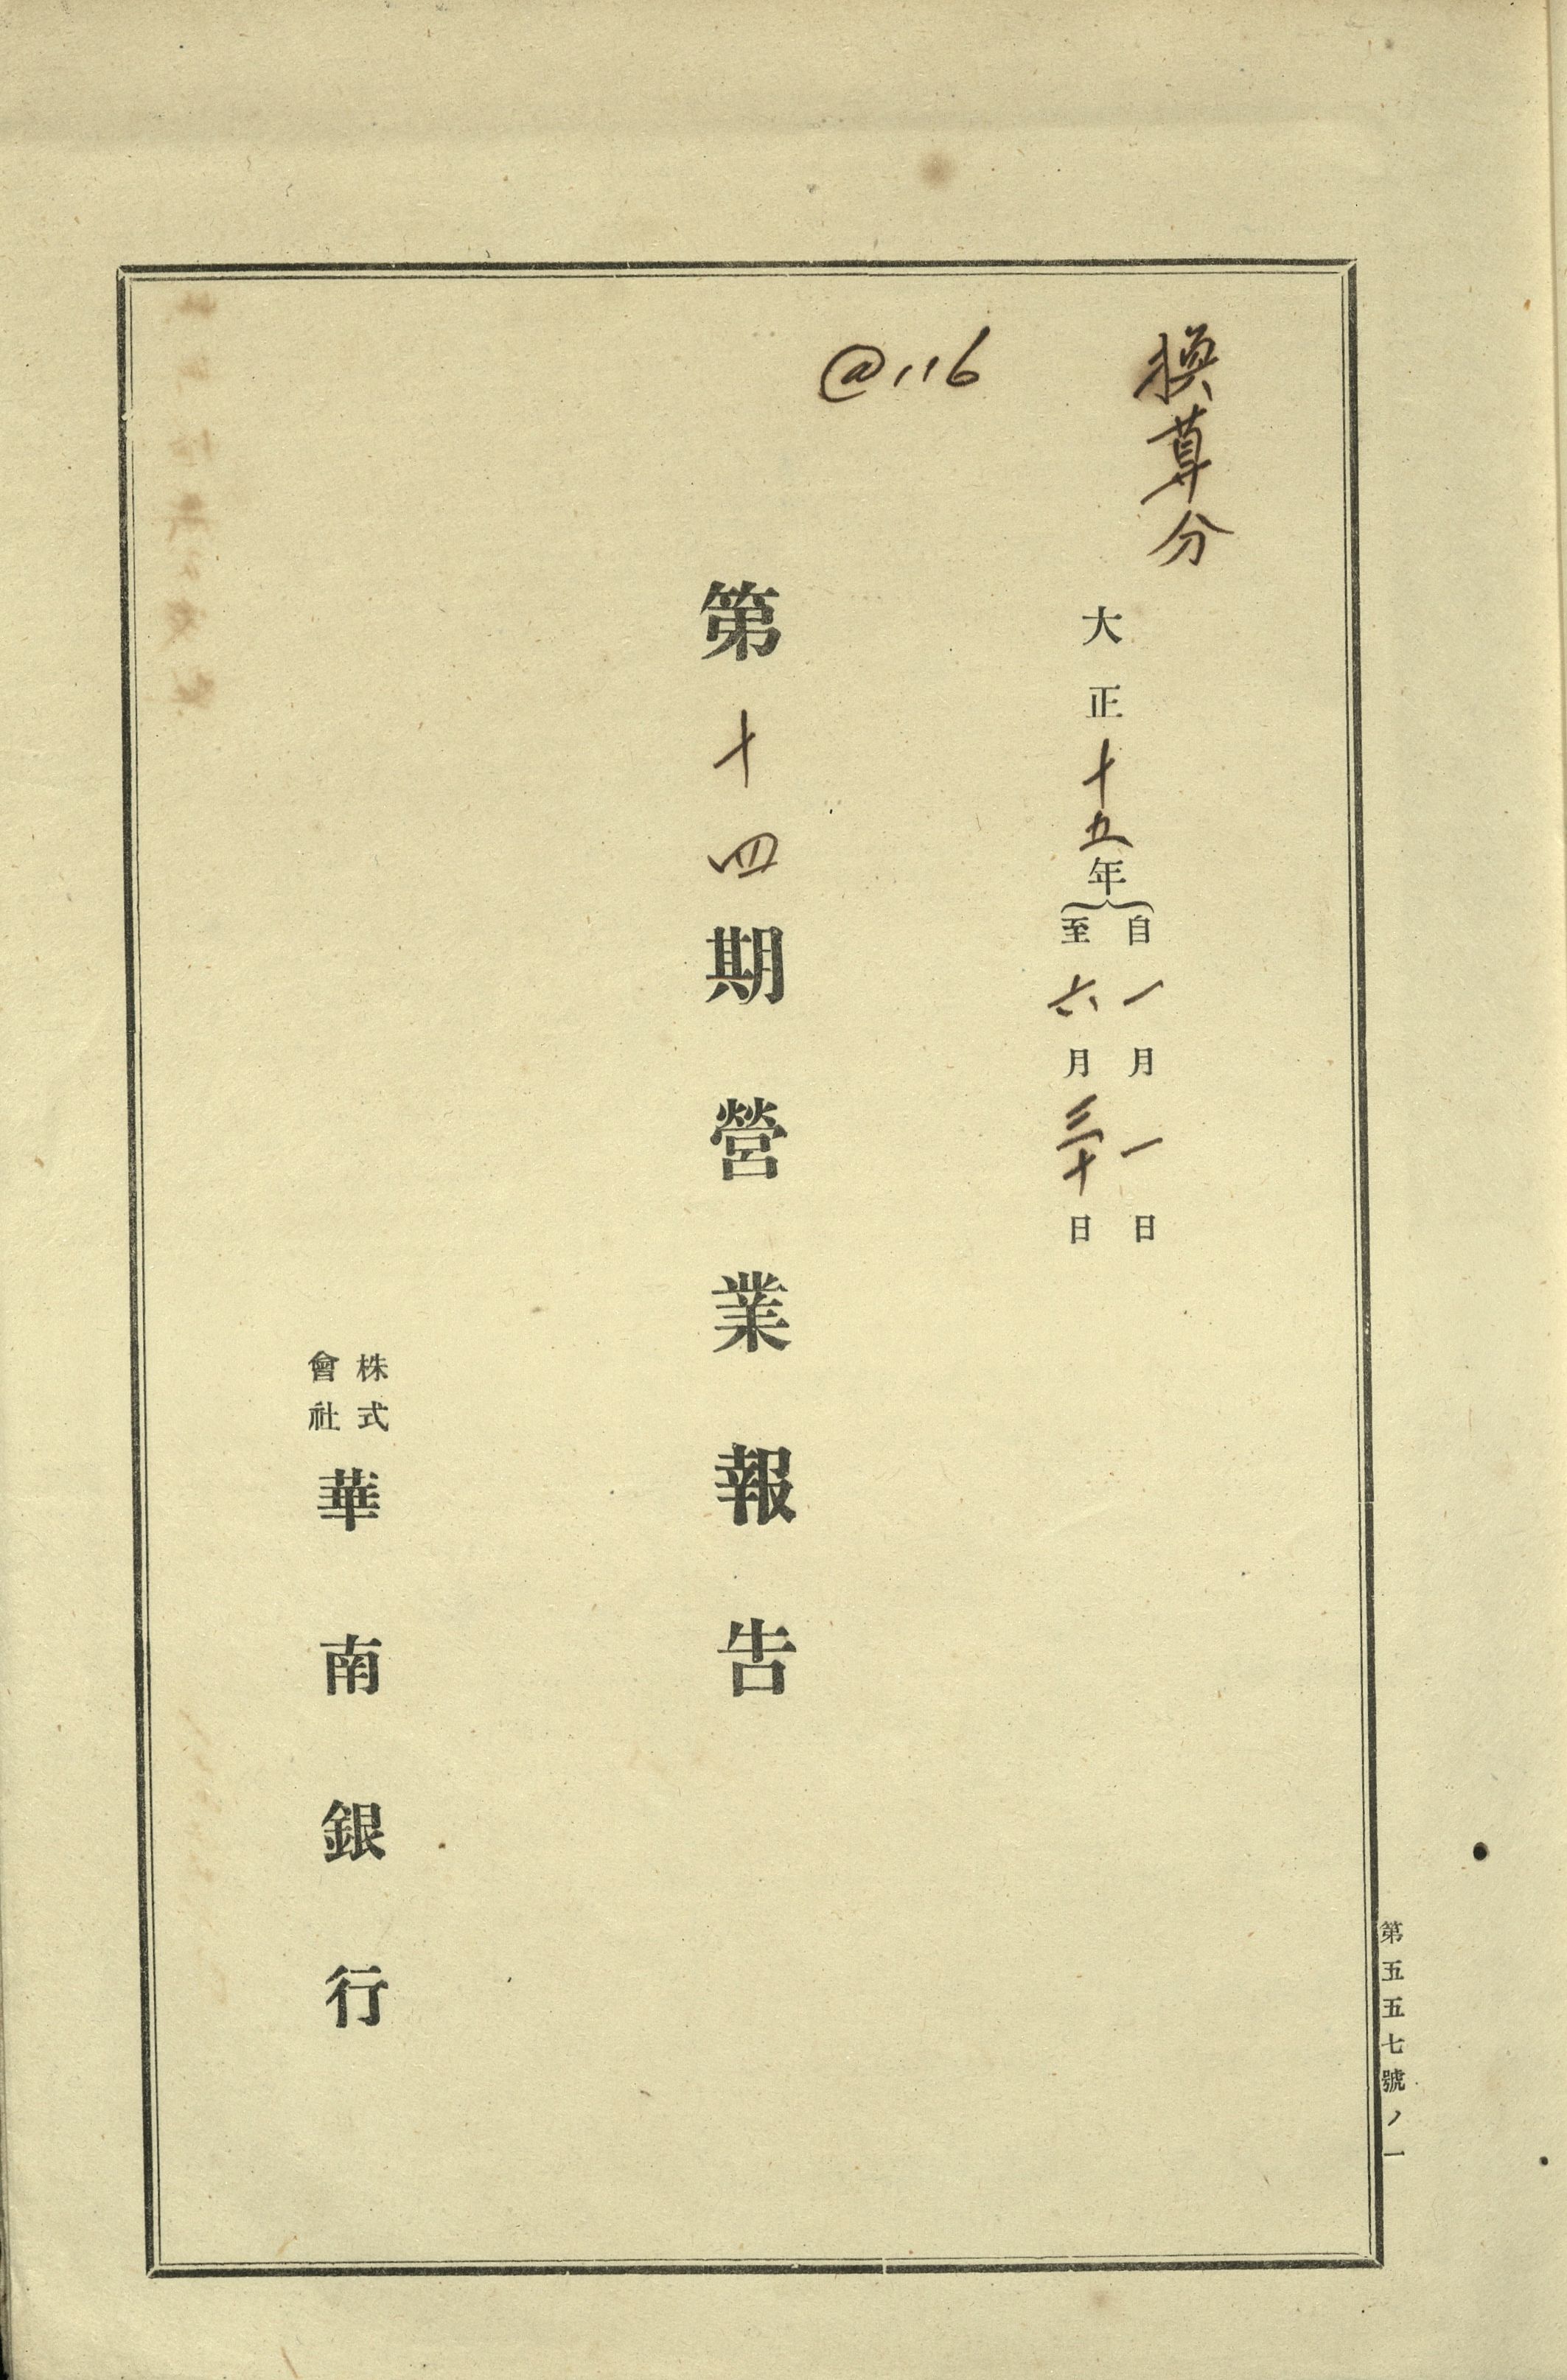 換算分
@116
大正十五年
自一月一日
至六月三十日
第十四期營業報告
株式
會社
華南銀行
第五五七號ノ一